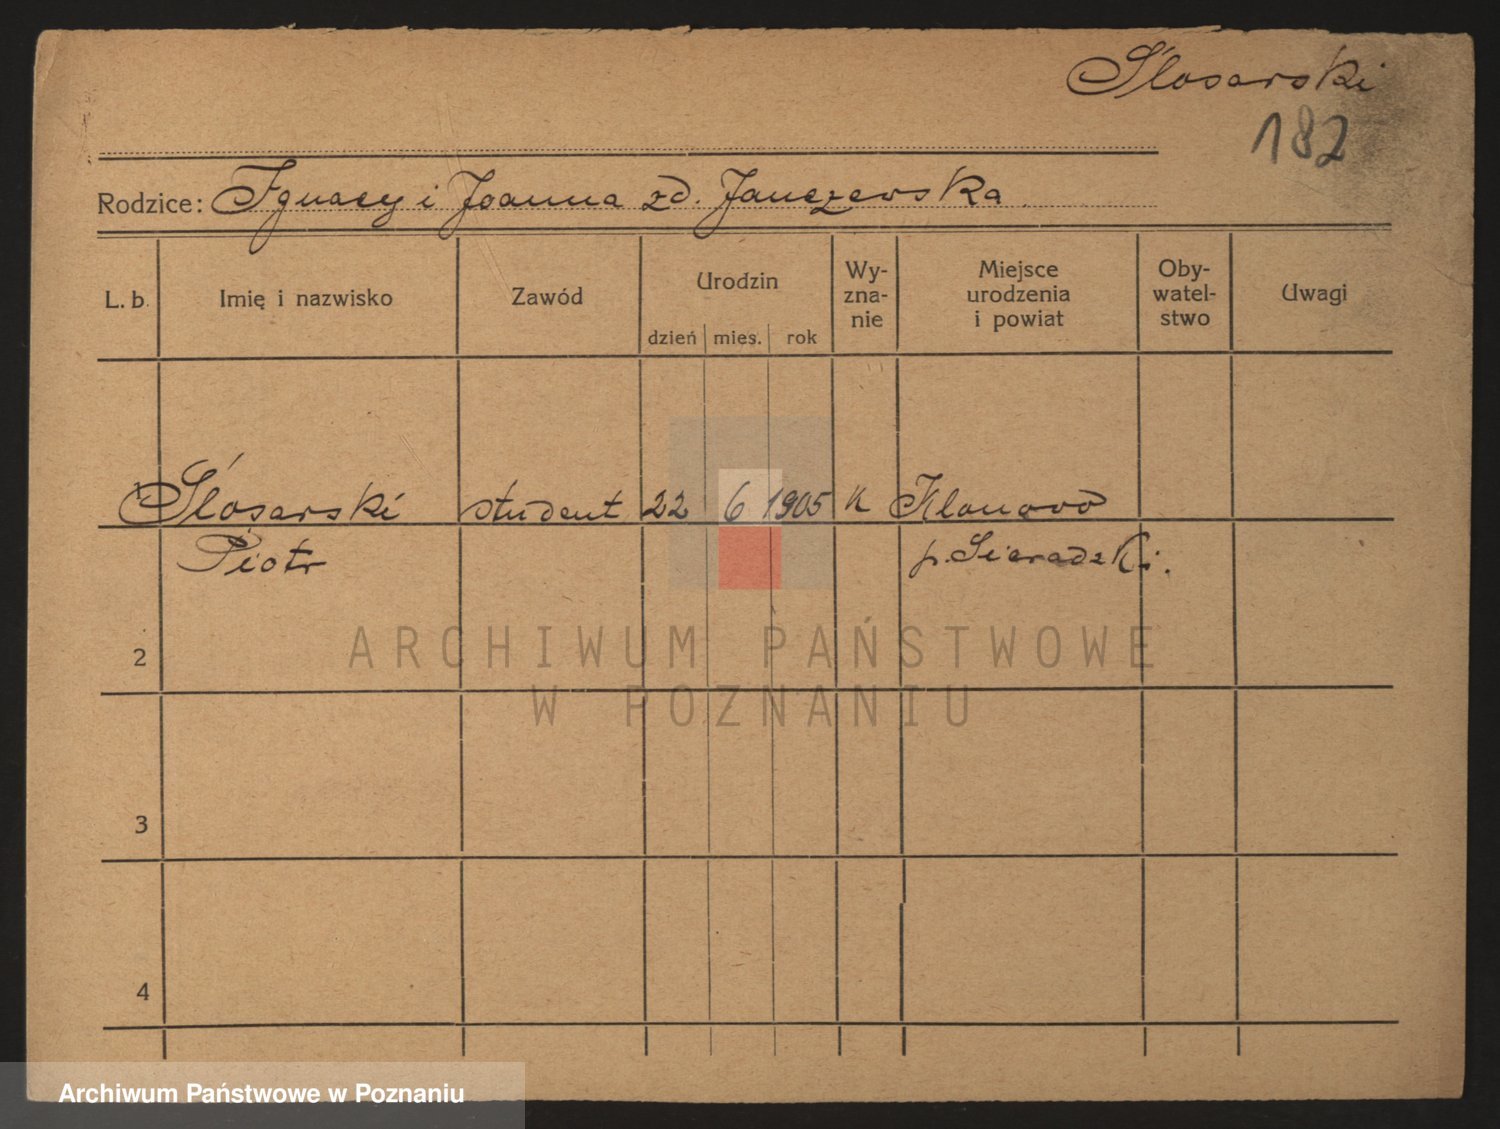 Ślosarski
182
Rodzice: Ignacy i Joanna zd. Janczewska
L. b. Imię i nazwisko Zawód Urodzin dzień mies. rok Wy-zna-nie Miejsce urodzenia i powiat Oby-watel-stwo Uwagi
1 Ślosarski student 22 6 1905 k Klonowo
Piotr p. Sieradzki.
2
ARCHIWUM PAŃSTWOWE
W POZNANIU
3
4
Archiwum Państwowe w Poznaniu